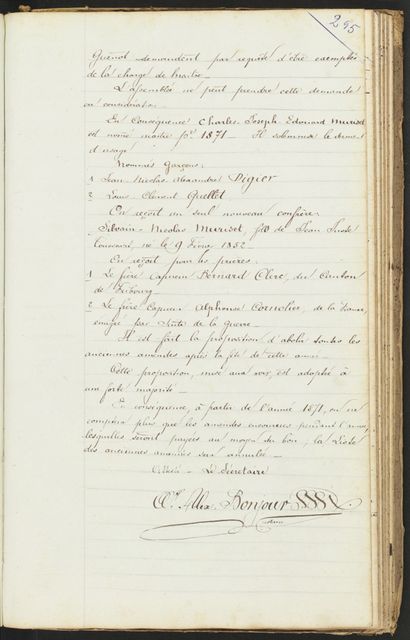 295
Guenot demandent par requête d'être exemptés
de la charge de maître.
L'assemblée ne peut prendre cette demande
en considération.
En Conséquence Charles Joseph Edouard Muriset
est nommé maître pr 1871 — Il solemnise le serment
d'usage
Nommés Garçons:
1 Jean Nicolas Alexandre Digier
2 Louis Clément Quellet.
On reçoit un seul nouveau confrère.
Silvain Nicolas Muriset, fils de Jean
né le 9 1852.
On reçoit pour les prières:
1 Le frère Capucin Bernard Clerc, du Canton
de Fribourg
2 Le frère Capucin Alphonse Cornelier, de la France,
émigré par suite de la guerre —
Il est fait la proposition d'abolir toutes les
anciennes amendes après la fête de cette année.
Cette proposition, mise aux voix, est adoptée à
une forte majorité —
En conséquence, à partir de l'année 1871, on ne
comptera plus que les amendes encourues pendant l'année,
lesquelles seront payées au moyen du bon; la liste
des anciennes amendes sera annulée —
Le Secrétaire
Alex Bonjour